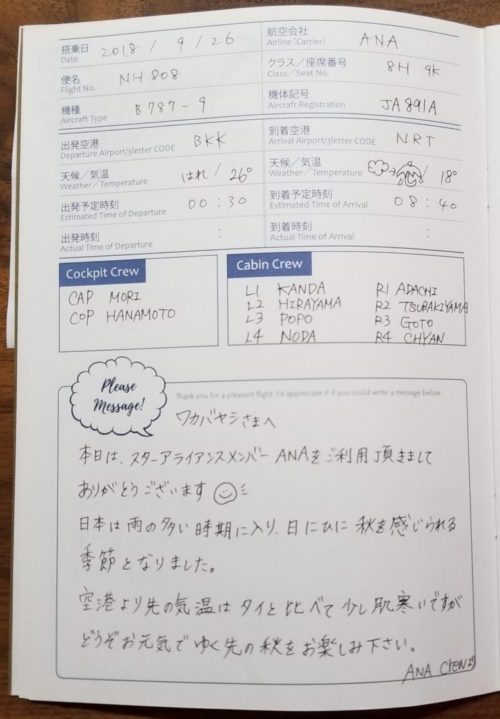 搭乗日 Date 2018 / 9 / 26 航空会社 Airline (Carrier) ANA
便名 Flight No. NH 808 クラス／座席番号 Class / Seat No. 8H 9K
機種 Aircraft Type B787-9 機体記号 Aircraft Registration JA891A
出発空港 Departure Airport/3letter CODE BKK 到着空港 Arrival Airport/3letter CODE NRT
天候／気温 Weather / Temperature はれ / 26° 天候／気温 Weather / Temperature / 18°
出発予定時刻 Estimated Time of Departure 00 : 30 到着予定時刻 Estimated Time of Arrival 08 : 40
出発時刻 Actual Time of Departure : 到着時刻 Actual Time of Arrival :
Cockpit Crew
CAP MORI
COP HANAMOTO
Cabin Crew
L1 KANDA R1 ADACHI
L2 HIRAYAMA R2 TSUBAKIYAMA
L3 POPO R3 GOTO
L4 NODA R4 CHYAN
Please
Message!
Thank you for a pleasant flight. I'd appreciate it if you could write a message below.
ワカバヤシさまへ
本日は、スターアライアンスメンバー ANAをご利用頂きまして
ありがとうございます
日本は雨の多い時期に入り、日にひに秋を感じられる
季節となりました。
空港より先の気温はタイと比べて少し肌寒いですが
どうぞお元気でゆく先の秋をお楽しみ下さい。
ANA crew